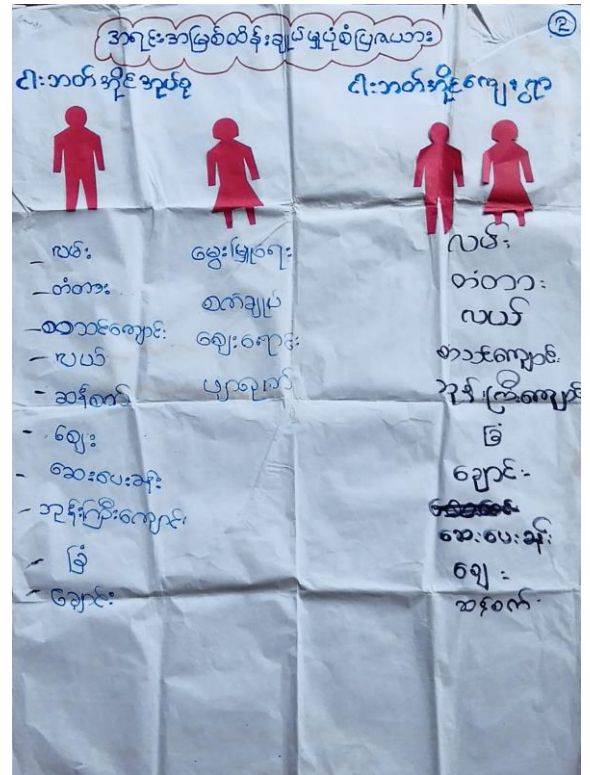 ②
အရင်းအမြစ်ထိန်းချုပ်မှုပုံစံပြဇယား
ငါးဘတ်အိုင်အုပ်စု
ငါးဘတ်အိုင်ကျေးရွာ
- လမ်း
- တံတား
- စာသင်ကျောင်း
- လယ်
- ဆန်စက်
- ဈေး
- ဆေးပေးခန်း
- ဘုန်းကြီးကျောင်း
- ခြံ
- ချောင်း
မွေးမြူရေး
စက်ချုပ်
ဈေးရောင်း
ဖျာရက်
လမ်း
တံတား
လယ်
စာသင်ကျောင်း
ဘုန်းကြီးကျောင်း
ခြံ
ချောင်း
ဆေးပေးခန်း
ဈေး
ဆန်စက်